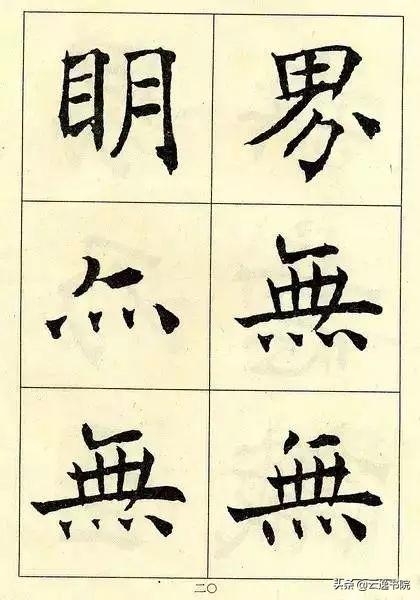 界無無
眀亦無
二〇
头条@云逸书院